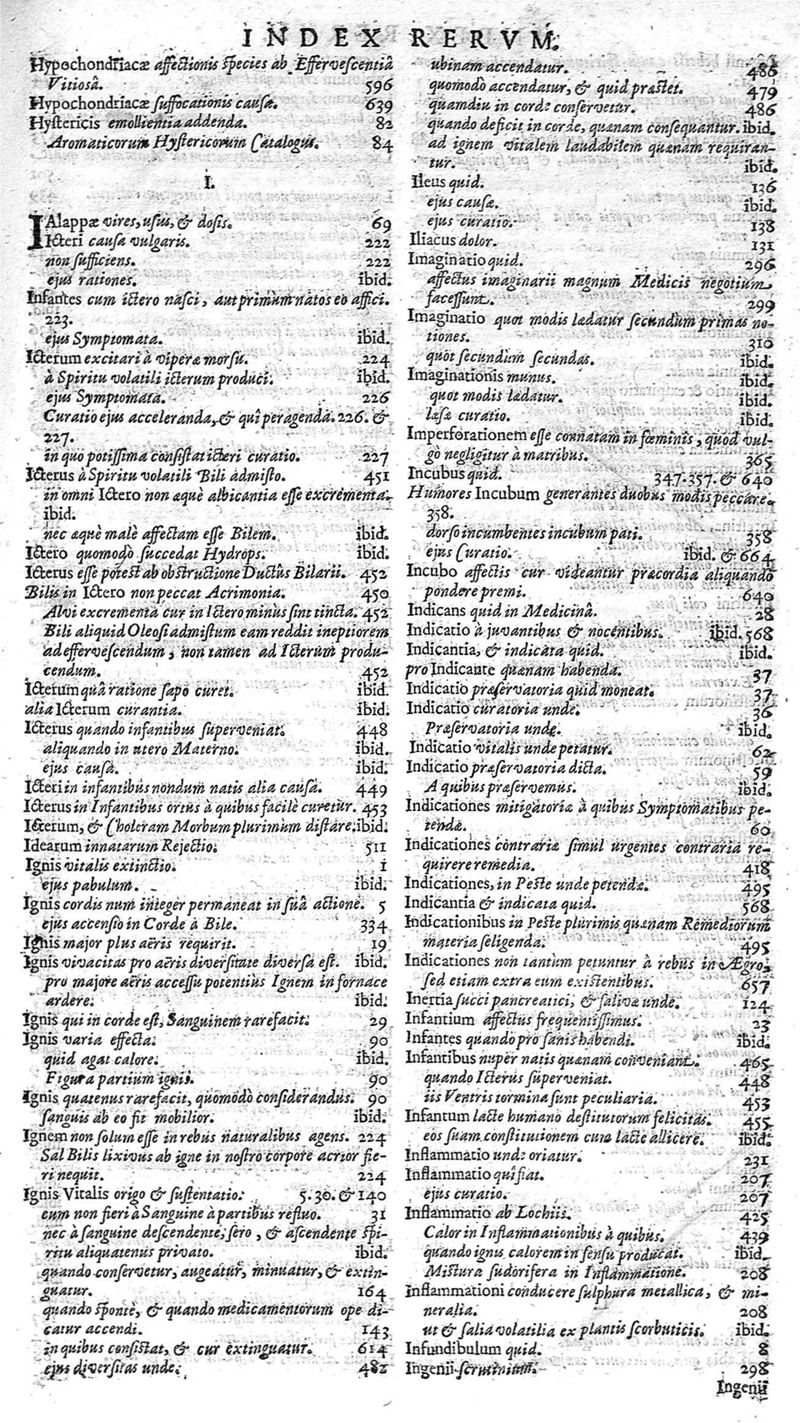 INDEX RERVM.
Hypochondriacæ affectionis species ab Effervescentiâ
Vitiosâ. 596
Hypochondriacæ suffocationis causæ. 639
Hystericis emollientia addenda. 82
Aromaticorum Hystericorum Catalogus. 84
I.
IAlappæ vires, usus, & dosis. 69
Icteri causa vulgaris. 222
non sufficiens. 222
ejus rationes. ibid.
Infantes cum ictero nasci, aut primùm natos eo affici.
223.
ejus Symptomata. ibid.
Icterum excitari à viperæ morsu. 224
à Spiritu volatili icterum produci. ibid.
ejus Symptomata. 226
Curatio ejus acceleranda, & quî peragenda. 226. &
227.
in quo potissima consistat icteri curatio. 227
Icterus à Spiritu volatili Bili admisto. 451
in omni Ictero non æquè albicantia esse excrementa.
ibid.
nec æquè malè affectam esse Bilem. ibid.
Ictero quomodo succedat Hydrops. ibid.
Icterus esse potest ab obstructione Ductûs Bilarii. 452
Bilis in Ictero non peccat Acrimonia. 450
Alvi excrementa cur in Ictero minus sint tincta. 452
Bili aliquid Oleosi admistum eam reddit ineptiorem
ad effervescendum, non tamen ad Icterum produ-
cendum. 452
Icterum quâ ratione sapo curet. ibid.
alia Icterum curantia. ibid.
Icterus quando infantibus superveniat. 448
aliquando in utero Materno. ibid.
ejus causa. ibid.
Icteri in infantibus nondum natis alia causa. 449
Icterus in Infantibus ortus à quibus facilè curetur. 453
Icterum, & Choleram Morbum plurimum distare. ibid.
Idearum innatarum Rejectio. 511
Ignis vitalis extinctio. 1
ejus pabulum. ibid.
Ignis cordis num integer permaneat in suâ actione. 5
ejus accensio in Corde à Bile. 334
Ignis major plus aëris requirit. 19
Ignis vivacitas pro aëris diversitate diversa est. ibid.
pro majore aëris accessu potentiùs Ignem in fornace
ardere. ibid.
Ignis qui in corde est, Sanguinem rarefacit. 29
Ignis varia effecta. 90
quid agat calore. ibid.
Figura partium ignis. 90
Ignis quatenus rarefacit, quomodò considerandus. 90
sanguis ab eo fit mobilior. ibid.
Ignem non solum esse in rebus naturalibus agens. 224
Sal Bilis lixivus ab igne in nostro corpore acrior fie-
ri nequit. 224
Ignis Vitalis origo & sustentatio. 5. 30. & 140
eum non fieri à Sanguine à partibus refluo. 31
nec à sanguine descendente, sero, & ascendente spi-
ritu aliquatenus privato. ibid.
quando conservetur, augeatur, minuatur, & extin-
guatur. 164
quando spontè, & quando medicamentorum ope di-
catur accendi. 143
in quibus consistat, & cur extinguatur. 614
ejus diversitas unde. 482
ubinam accendatur. 486
quomodò accendatur, & quid præstet. 479
quamdiu in corde conservetur. 486
quando deficit in corde, quænam consequantur. ibid.
ad ignem vitalem laudabilem quænam requiran-
tur. ibid.
Ileus quid. 136
ejus causæ. ibid.
ejus curatio. 138
Iliacus dolor. 131
Imaginatio quid. 296
affectus imaginarii magnum Medicis negotium
facessunt. 299
Imaginatio quot modis lædatur secundùm primas no-
tiones. 310
quot secundùm secundas. ibid.
Imaginationis munus. ibid.
quot modis lædatur. ibid.
læsæ curatio. ibid.
Imperforationem esse connatam in fœminis, quod vul-
gò negligitur à matribus. 365
Incubus quid. 347. 357. & 640
Humores Incubum generantes duobus modis peccare.
358.
dorso incumbentes incubum pati. 358
ejus Curatio. ibid. & 664
Incubo affectis cur videantur præcordia aliquando
pondere premi. 640
Indicans quid in Medicinâ. 28
Indicatio à juvantibus & nocentibus. ibid. 568
Indicantia, & indicata quid. ibid.
pro Indicante quænam habenda. 37
Indicatio præservatoria quid moneat. 37
Indicatio curatoria unde. 36
Præservatoria unde. ibid.
Indicatio vitalis unde petatur. 62
Indicatio præservatoria dicta. 59
A quibus præservemus. ibid.
Indicationes mitigatoriæ à quibus Symptomatibus pe-
tendæ. 60
Indicationes contrariæ simul urgentes contraria re-
quirere remedia. 418
Indicationes, in Peste unde petendæ. 495
Indicantia & indicata quid. 568
Indicationibus in Peste plurimis quænam Remediorum
materia seligenda. 495
Indicationes non tantum petuntur à rebus in Ægro,
sed etiam extra eum existentibus. 657
Inertia succi pancreatici, & salivæ unde. 124
Infantium affectus frequentissimus. 23
Infantes quando pro sanis habendi. ibid.
Infantibus nuper natis quænam conveniant. 465
quando Icterus superveniat. 448
iis Ventris tormina sunt peculiaria. 453
Infantum lacte humano destitutorum felicitas. 455
eos suam constitutionem cum lacte allicere. ibid.
Inflammatio unde oriatur. 231
Inflammatio quî fiat. 207
ejus curatio. 207
Inflammatio ab Lochiis. 425
Calor in Inflammationibus à quibus. 439
quando ignis calorem in sensu producat. ibid.
Mistura sudorifera in Inflammatione. 208
Inflammationi conducere sulphura metallica, & mi-
neralia. 208
ut & salia volatilia ex plantis scorbuticis. ibid.
Infundibulum quid. 8
Ingenii scrutinium. 298
Ingenii